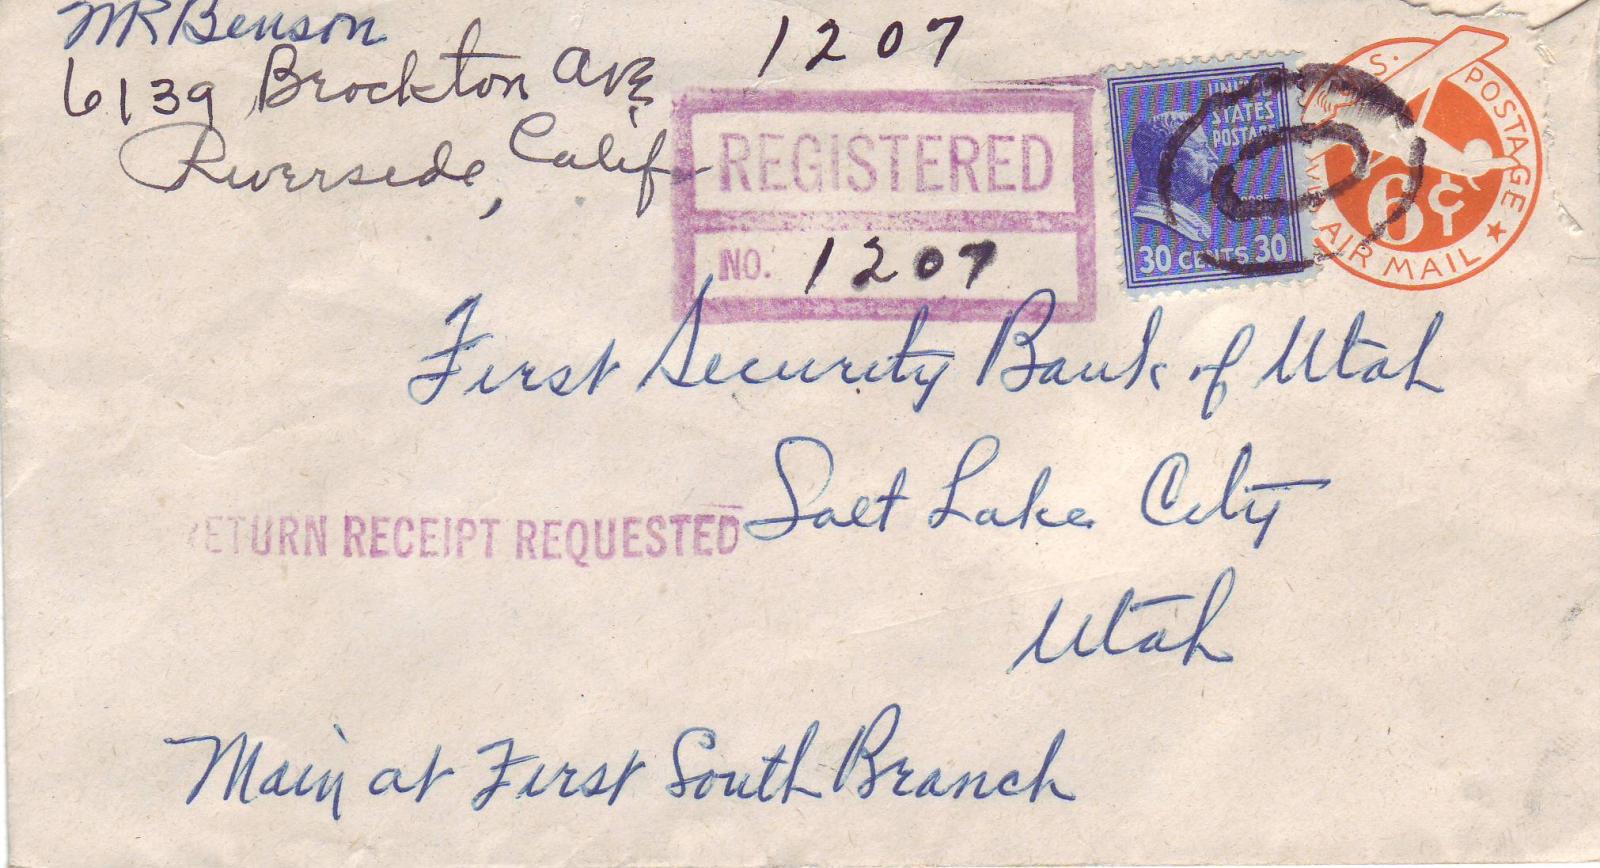 WR Benson
6139 Brockton Ave
Riverside, Calif
1207
REGISTERED
NO. 1207
UNITED STATES POSTAGE
30 CENTS 30
S. POSTAGE
6¢
AIR MAIL
First Security Bank of Utah
Salt Lake City
Utah
RETURN RECEIPT REQUESTED
Main at First South Branch